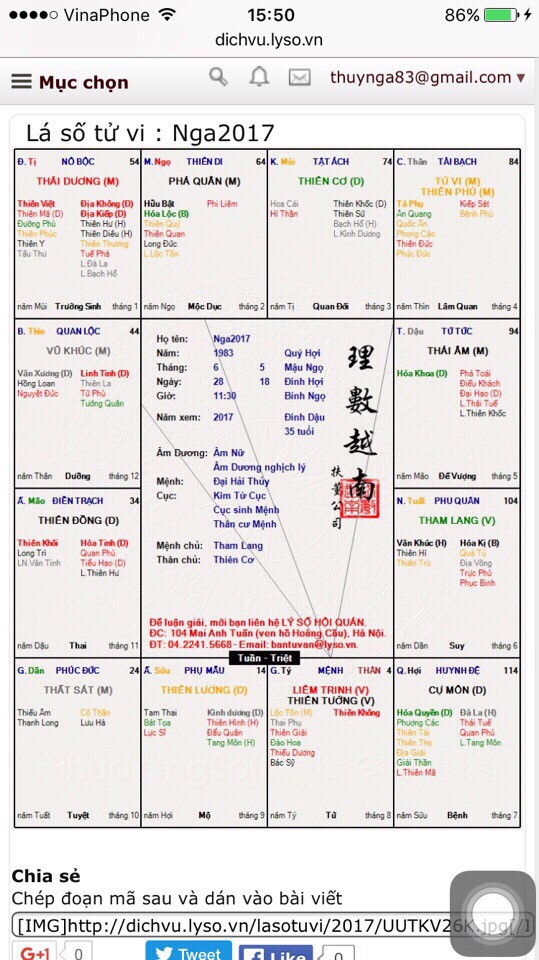 VinaPhone 15:50 86%
dichvu.lyso.vn
Mục chọn thuynga83@gmail.com ▼
Lá số tử vi : Nga2017
Đ. Tị NÔ BỘC 54
THÁI DƯƠNG (M)
Thiên Việt Địa Không (D)
Thiên Mã (D) Địa Kiếp (D)
Đường Phù Thiên Hư (H)
Thiên Phúc Thiên Diêu (H)
Thiên Y Thiên Thương
Tấu Thư Tuế Phá
L.Đà La
L.Bạch Hổ
năm Mùi Trường Sinh tháng 1
M. Ngọ THIÊN DI 64
PHÁ QUÂN (M)
Hữu Bật Phi Liêm
Hóa Lộc (B)
Thiên Quý
Thiên Quan
Long Đức
L.Lộc Tồn
năm Ngọ Mộc Dục tháng 2
K. Mùi TẬT ÁCH 74
THIÊN CƠ (D)
Hoa Cái Thiên Khốc (D)
Hỉ Thần Thiên Sứ
Bạch Hổ (H)
L.Kình Dương
năm Tị Quan Đới tháng 3
C. Thân TÀI BẠCH 84
TỬ VI (M)
THIÊN PHỦ (M)
Tả Phụ Kiếp Sát
Ân Quang Bệnh Phù
Quốc Ấn
Phong Cáo
Thiên Đức
Phúc Đức
năm Thìn Lâm Quan tháng 4
B. Thìn QUAN LỘC 44
VŨ KHÚC (M)
Văn Xương (D) Linh Tinh (D)
Hồng Loan Thiên La
Nguyệt Đức Tử Phù
Tướng Quân
năm Thân Dưỡng tháng 12
Họ tên: Nga2017
Năm: 1983 Quý Hợi
Tháng: 6 5 Mậu Ngọ
Ngày: 28 18 Đinh Hợi
Giờ: 11:30 Bính Ngọ
Năm xem: 2017 Đinh Dậu
35 tuổi
Âm Dương: Âm Nữ
Âm Dương nghịch lý
Mệnh: Đại Hải Thủy
Cục: Kim Tứ Cục
Cục sinh Mệnh
Thân cư Mệnh
Mệnh chủ: Tham Lang
Thân chủ: Thiên Cơ
理數越南
扶董公司
Để luận giải, mời bạn liên hệ LÝ SỐ HỘI QUÁN.
ĐC: 104 Mai Anh Tuấn (ven hồ Hoàng Cầu), Hà Nội.
ĐT: 04.2241.5668 - Email: bantuvan@lyso.vn.
T. Dậu TỬ TỨC 94
THÁI ÂM (M)
Hóa Khoa (D) Phá Toái
Điếu Khách
Đại Hao (D)
L.Thái Tuế
L.Thiên Khốc
năm Mão Đế Vượng tháng 5
Ấ. Mão ĐIỀN TRẠCH 34
THIÊN ĐỒNG (D)
Thiên Khôi Hỏa Tinh (D)
Long Trì Quan Phù
LN.Văn Tinh Tiểu Hao (D)
L.Thiên Hư
năm Dậu Thai tháng 11
N. Tuất PHU QUÂN 104
THAM LANG (V)
Văn Khúc (H) Hóa Kị (B)
Thiên Hỉ Quả Tú
Thiên Trù Địa Võng
Trực Phù
Phục Binh
năm Dần Suy tháng 6
Tuần - Triệt
G. Dần PHÚC ĐỨC 24
THẤT SÁT (M)
Thiếu Âm Cô Thần
Thanh Long Lưu Hà
năm Tuất Tuyệt tháng 10
Ấ. Sửu PHỤ MẪU 14
THIÊN LƯƠNG (D)
Tam Thai Kình dương (D)
Bát Tọa Thiên Hình (H)
Lực Sĩ Đẩu Quân
Tang Môn (H)
năm Hợi Mộ tháng 9
G. Tý MỆNH THÂN 4
LIÊM TRINH (V)
THIÊN TƯỚNG (V)
Lộc Tồn (M) Thiên Không
Thai Phụ
Thiên Giải
Đào Hoa
Thiếu Dương
Bác Sỹ
năm Tý Tử tháng 8
Q. Hợi HUYNH ĐỆ 114
CỰ MÔN (D)
Hóa Quyền (D) Đà La (H)
Phượng Các Thái Tuế
Thiên Tài Quan Phủ
Thiên Thọ L.Tang Môn
Địa Giải
Giải Thần
L.Thiên Mã
năm Sửu Bệnh tháng 7
Chia sẻ
Chép đoạn mã sau và dán vào bài viết
[IMG]http://dichvu.lyso.vn/lasotuvi/2017/UUTKV26K.jpg[/I
G+1 0 Tweet Like 0